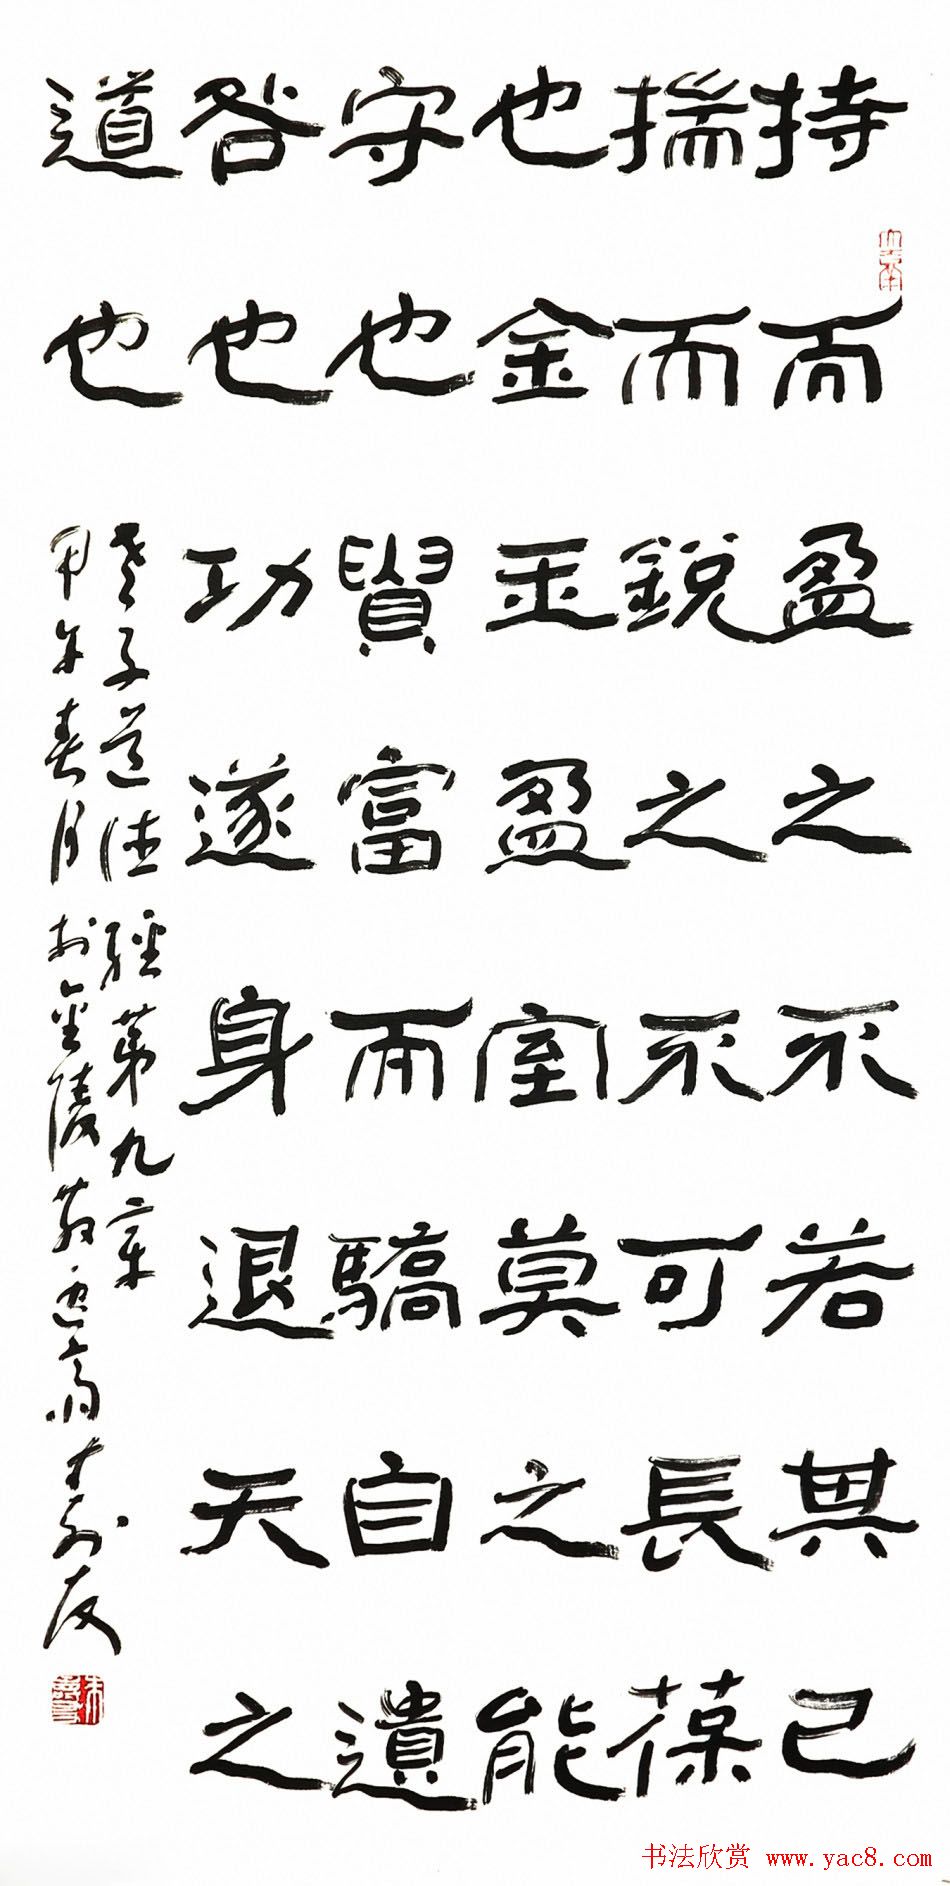 持而盈之不若其已
揣而銳之不可長葆
也金玉盈室莫之能
守也貴富而驕自遺
咎也功遂身退天之
道也
老子道德經第九章
甲午春月於金陵齋壽友
书法欣赏 www.yac8.com